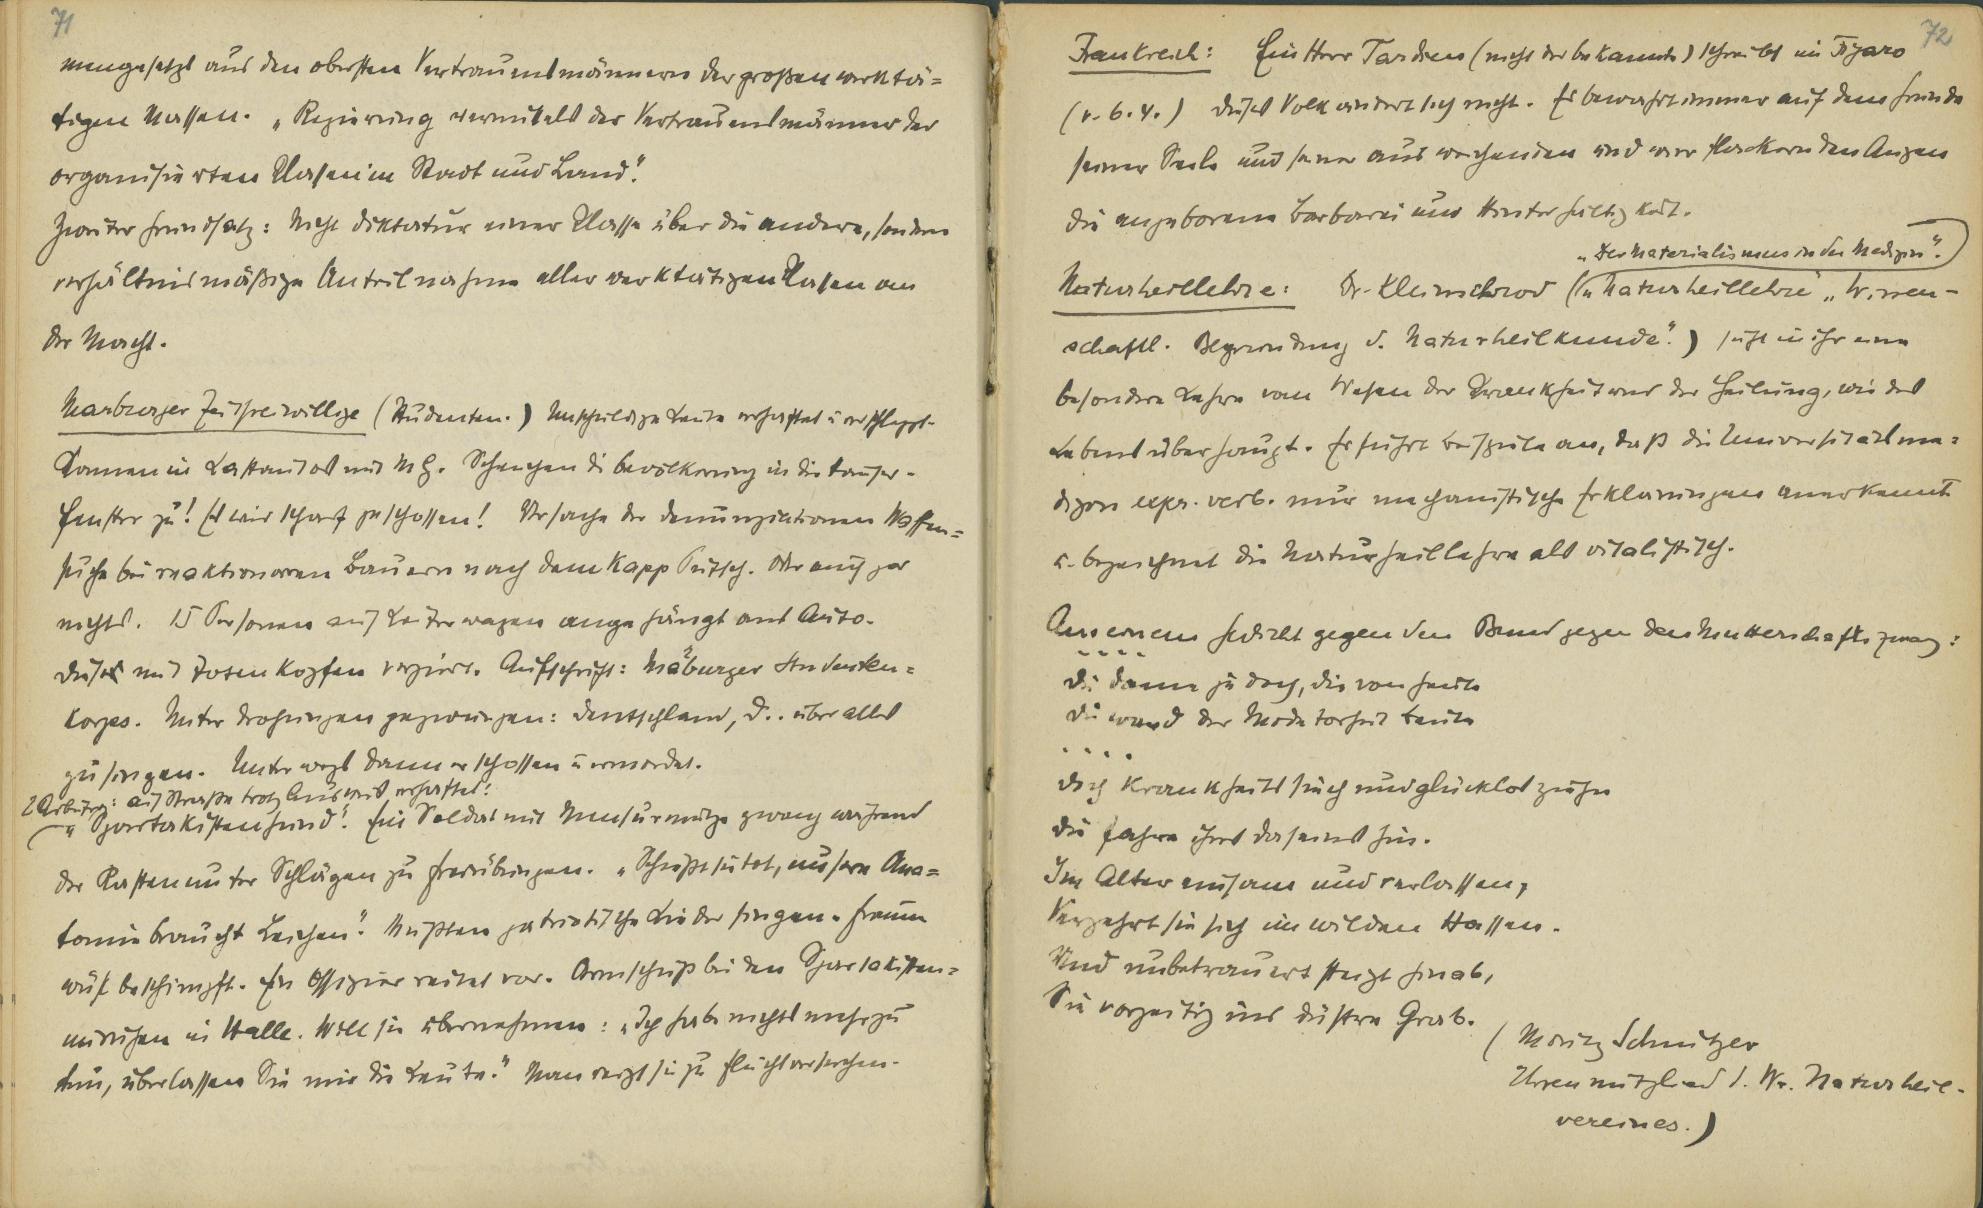 71
mengesetzt aus den obersten Vertrauensmännern der großen werktä=
tigen Massen. „Regierung vermittels der Vertrauensmänner der
organisierten Klassen in Stadt und Land“.
Zweiter Grundsatz: Nicht Diktatur einer Klasse über die andere, sondern
verhältnismäßige Anteilnahme aller werktätigen Klassen an
der Macht.
Marburger Zeitfreiwillige (Studenten.) Unschuldige Leute verhaftet u verschleppt.
Kamen in Lastautos mit M.G. Scheuchen die Bevölkerung in die Häuser.
Fenster zu! Es wird scharf geschossen! Ursache der Denunziationen Waffen=
suche bei reaktionären Bauern nach dem Kapp Putsch. Oder auch gar
nichts. 15 Personen auf Leiterwagen angehängt ans Auto.
Dieses mit Totenköpfen verziert. Aufschrift: Marburger Studenten=
korps. Unter Drohungen gezwungen: Deutschland, D.. über alles
zu singen. Unterwegs dann erschossen u ermordet.
2 Arbeiter: auf Straße trotz Ausweis verhaftet!
„Spartakistenhund“. Ein Soldat mit Mensurmütze zwang während
der Rasten unter Schlägen zu Freiübungen. „Schießt sie tot, unsere Ana=
tomie braucht Leichen“. Mußten patriotische Lieder singen. Frauen
wüst beschimpft. Ein Offizier reitet vor. Armschuß bei den Spartakisten=
unruhen in Halle. Will sie übernehmen: „Ich habe nichts mehr zu
tun, überlassen Sie mir die Leute.“ Man reizt sie zu Fluchtversuchen.
72
Frankreich: Ein Herr Tardieu (nicht der bekannte) schreibt im Figaro
(v. 6. 4.) Dieses Volk ändert sich nicht. Er bewahrt immer auf dem Grunde
seiner Seele und seiner ausweichenden und flackernden Augen
die angeborene Barbarei und Hinterhältigkeit.
„Der Materialismus in der Medizin“.
Naturheillehre: Dr. Kleinschrod („Naturheillehre“ „Wissen-
schaftl. Begründung d. Naturheilkunde“.) sieht in ihr eine
besondere Lehre vom Wesen der Krankheit und der Heilung, wie des
Lebens überhaupt. Er führt Beispiele an, daß die Universitätsme=
dizin expr. verb. nur mechanistische Erklärungen anerkennt
u. bezeichnet die Naturheillehre als vitalistisch.
Aus einem Gedicht gegen den Bund gegen den Mutterschaftszwang:
. . . .
Die Dame jedoch, die von heute
Die ward der Modetorheit Beute
. . . .
Doch krankheitssiech und glücklos ziehn
Die Jahre ihres Daseins hin.
Im Alter einsam und verlassen,
Verzehrt sie sich im wilden Hassen.
Und unbetrauert steigt hinab,
Sie vorzeitig ins düstre Grab.
(Moritz Schnitzer
Ehrenmitglied d. Wr. Naturheil-
vereines.)